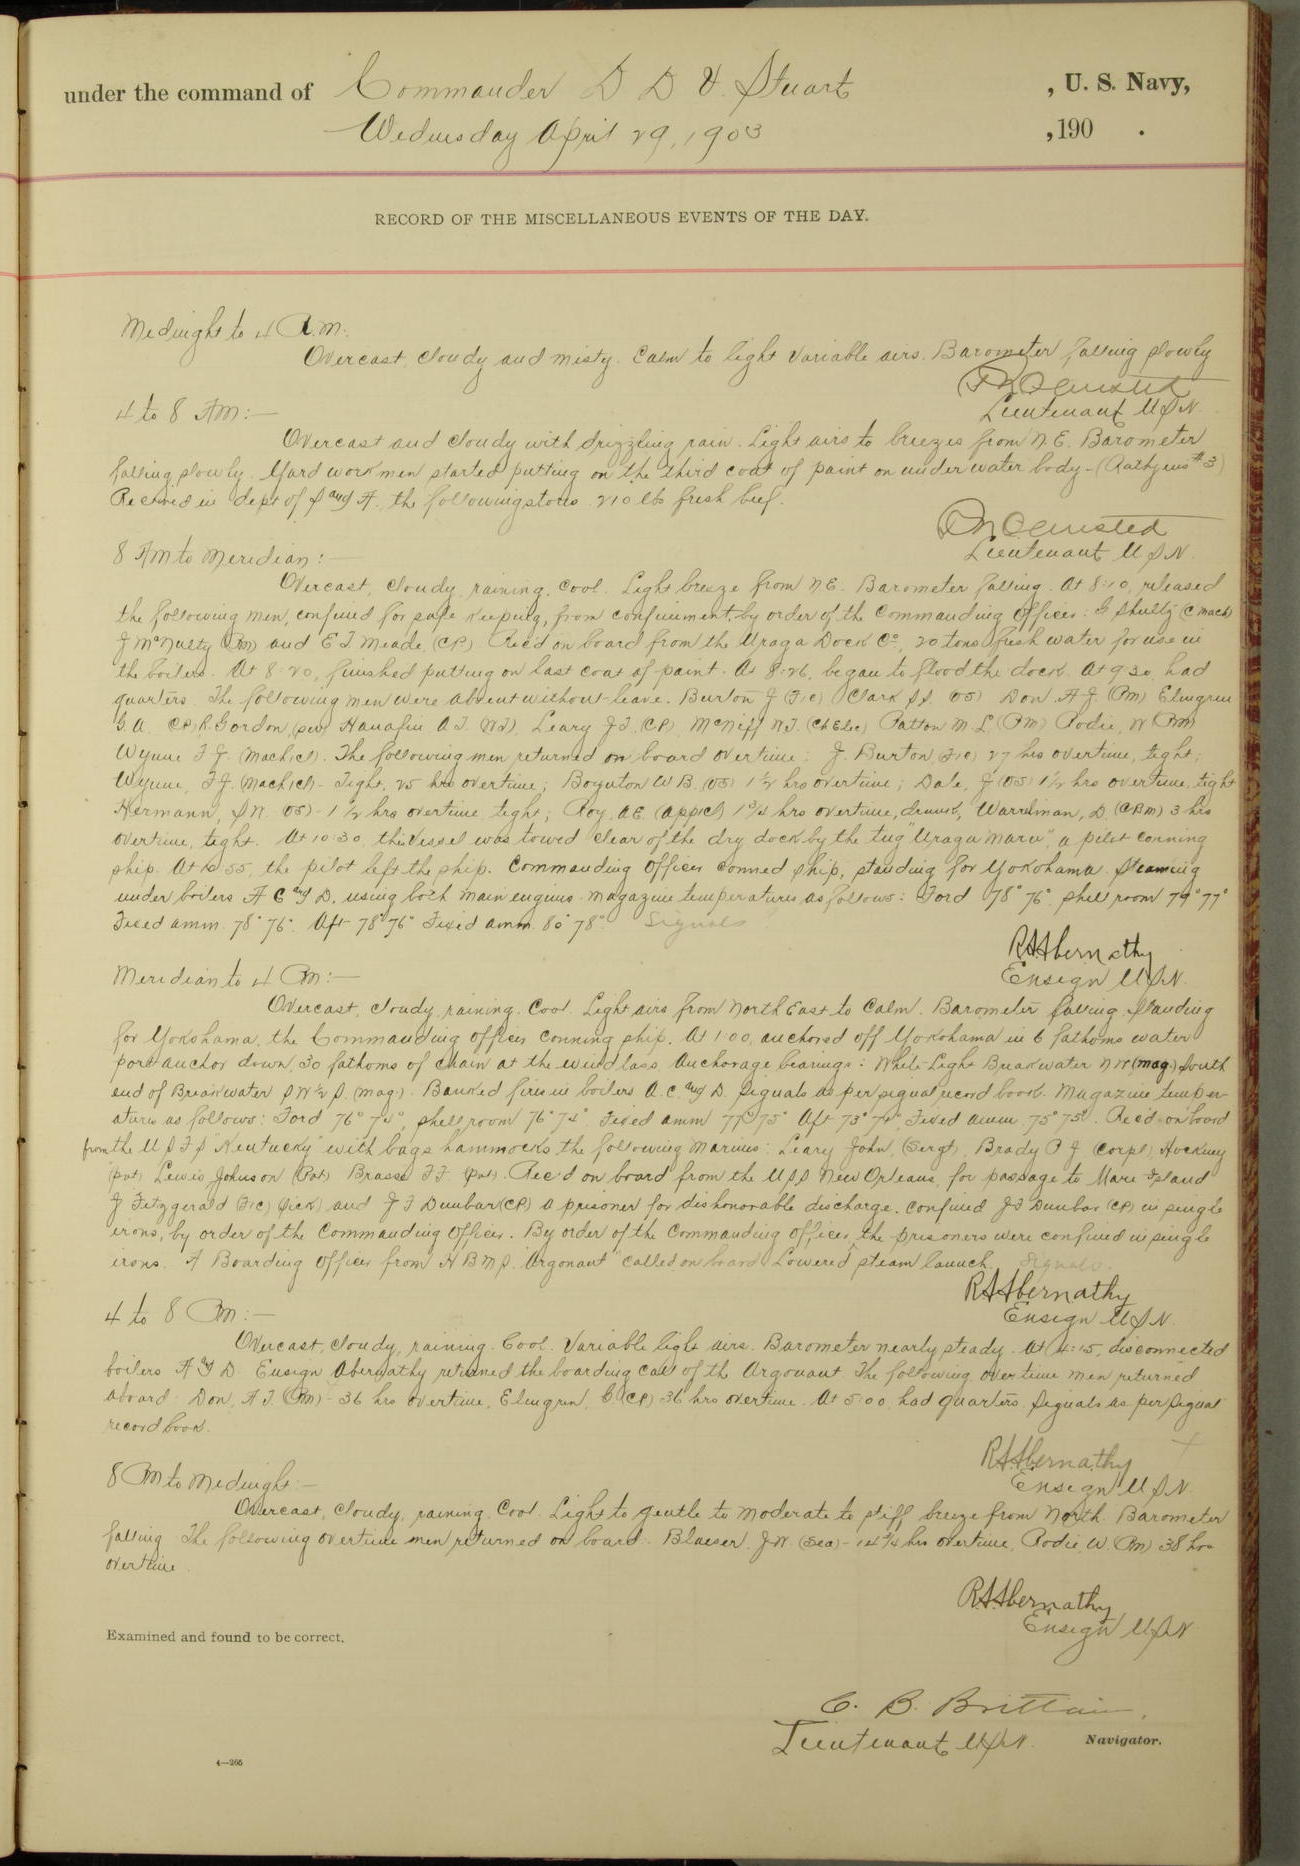 under the command of Commander D D V. Stuart , U. S. Navy,
Wednesday April 29, 1903 , 190 .
RECORD OF THE MISCELLANEOUS EVENTS OF THE DAY.
Midnight to 4 A.M:
Overcast, cloudy and misty. Calm to light variable airs. Barometer falling slowly
Lieutenant U S N.
4 to 8 AM:—
Overcast and cloudy with drizzling rain. Light airs to breezes from N.E. Barometer
falling slowly. Yard workmen started putting on the third coat of paint on under water body - (Rathjens #3)
Received in dept of S and A. the following stores 210 lbs fresh beef.
Lieutenant U S N.
8 AM to Meridian:—
Overcast, cloudy, raining, cool. Light breeze from N.E. Barometer falling. At 8:10, released
the following men, confined for safe keeping, from confinement, by order of the Commanding Officer: G Shultz (C mach)
J McNulty (Pm) and E T Meade (CP) Rec'd on board from the Uraga Dock Co, 20 tons fresh water for use in
the boilers. At 8:20, finished putting on last coat of paint. At 8:26, began to flood the dock. At 9 30, had
quarters. The following men were absent without leave. Burton J (F1c) Clark (OS) Don A J (Pm) Elmgren
G. A. (CP) R. Gordon (sea) Hanafin A T Leary J T (CP) McNiff W.T. (Ch Elec) Patton M L (Pm) Rodie, W (Pm)
Wynne T J. (Mach 1cl). The following men returned on board overtime: J. Burton, (F1c) 27 hrs overtime, tight;
Wynne, T J. (Mach 1cl) - Tight, 25 hrs overtime; Boynton W B. (OS) 1 1/2 hrs overtime; Dale, J (OS) 1 1/2 hrs overtime, tight
Hermann, (OS) - 1 1/2 hrs overtime tight; Roy, A E (App 1cl) 1 3/4 hrs overtime, drunk, D (CPm) 3 hrs
overtime, tight. At 10:30, the vessel was towed clear of the dry dock by the tug "Uraga Maru", a pilot conning
ship. At 55, the pilot left the ship. Commanding Officer conned ship, standing for Yokohama. Steaming
under boilers A C and D. using both main engines. Magazine temperatures, as follows: Ford 78° 76°. shell room 79° 77°
Fixed amm. 78° 76°. Aft 78° 76° Fixed amm. 80° 78°. Signals
R.A. Abernathy
Ensign U S N.
Meridian to 4 PM:—
Overcast, cloudy, raining. Cool. Light airs from North East to Calm. Barometer falling. Standing
for Yokohama, the Commanding officer conning ship. At 1:00, anchored off Yokohama in 6 fathoms water
port anchor down, 30 fathoms of chain at the windlass. Anchorage bearings: White Light Breakwater N W (mag.) South
end of Breakwater S W 1/2 S. (mag.). Banked fires in boilers A. C. and D. Signals as per signal record book. Magazine temper-
atures as follows: Ford 76° 74°, shell room 76° 74°. Fixed amm 77° 75° Aft 73° 72°, Fixed amm. 75° 75°. Rec'd on board
from the U S F S "Kentucky" with bags hammocks the following Marines: Leary John, (Sergt), Brady P J (Corpl), Hockney
(pvt) Lewis Johnson (Pvt) Brasse F F. (pvt). Rec'd on board from the U S S New Orleans, for passage to Mare Island
J Fitzgerald (F1c) (sick) and J F Dunbar (CP) a prisoner for dishonorable discharge. Confined J F Dunbar (CP) in single
irons, by order of the Commanding Officer. By order of the Commanding officer, the prisoners were confined in single
irons. A Boarding Officer from H B M S. "Argonaut" called on board. Lowered steam launch. Signals.
R.A. Abernathy
Ensign U S N.
4 to 8 PM:—
Overcast, cloudy, raining. Cool. Variable light airs. Barometer nearly steady. At 4:15, disconnected
boilers A and D. Ensign Abernathy returned the boarding call of the Argonaut. The following overtime men returned
aboard. Don, A J. (Pm) - 36 hrs overtime, Elmgren, G (CP) 36 hrs overtime. At 5:00, had quarters. Signals as per signal
record book.
R.A. Abernathy
Ensign U S N.
8 PM to Midnight:—
Overcast, cloudy, raining. Cool. Light to gentle to moderate to stiff breeze from North. Barometer
falling. The following overtime men returned on board. Blaeser J. W. (Sea) - 14 3/4 hrs overtime, Rodie, W. (Pm) 38 hrs
overtime.
R.A. Abernathy
Ensign U S N
Examined and found to be correct.
C. B. Brittain,
Lieutenant U S N. Navigator.
4—265